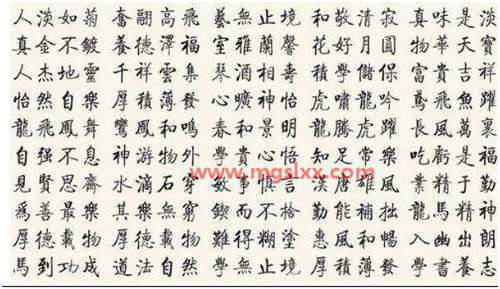 人淡如菊 奮翮高飛 藝無止境 和敬清寂 真味是淡
真金不鍍 養德澤福 室雅蘭馨 花好月圓 物華天寶
人杰地靈 千祥雲集 琴酒相壽 學儲保 富貴吉祥
怡然自樂 厚積薄發 曠神怡 虎嘯龍吟 鳶飛魚躍
龍飛鳳舞 鸞鳳和鳴 春和景明 龍騰虎躍 長風萬里
自强不息 神游物外 學貴心悟 知足常樂 吃虧是福
www.mgslxx.com
見賢思齊 水滴石穿 敏事慎言 漢唐雄風 業精于勤
爲善最樂 其樂無窮 鍥而不捨 勤能補拙 龍馬精神
厚德載物 厚德載物 難得糊塗 惠風和暢 入幽出朗
馬到功成 道法自然 學無止境 厚積薄發 學書養志